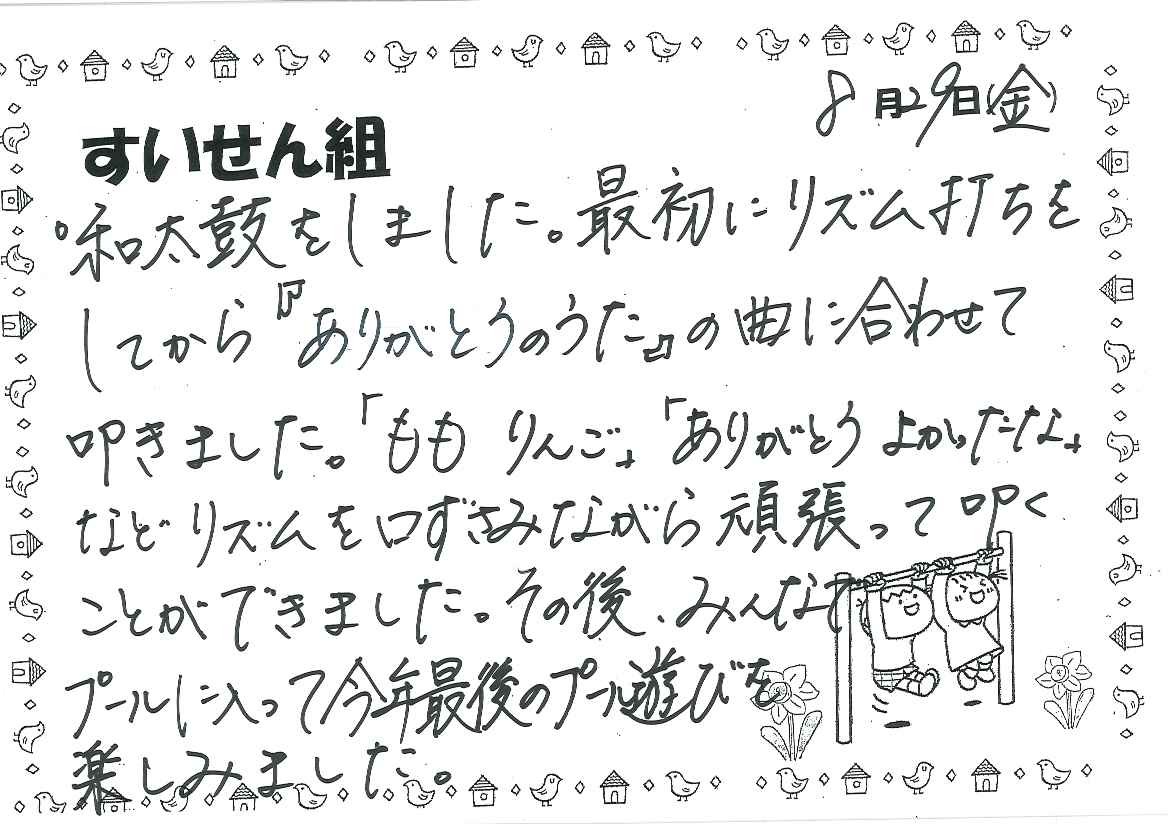 8月29日(金)
すいせん組
・和太鼓をしました。最初にリズム打ちを
してから『ありがとうのうた』の曲に合わせて
叩きました。「もも りんご」「ありがとう よかったな」
などリズムを口ずさみながら頑張って叩く
ことができました。その後、みんなで
プールに入って今年最後のプール遊びを
楽しみました。